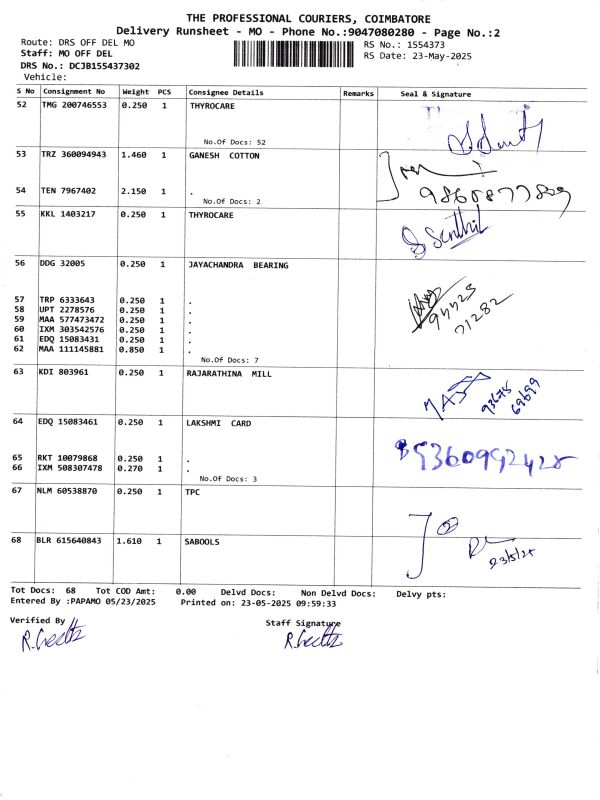 THE PROFESSIONAL COURIERS, COIMBATORE
Delivery Runsheet - MO - Phone No.:9047080280 - Page No.:2
Route: DRS OFF DEL MO RS No.: 1554373
Staff: MO OFF DEL RS Date: 23-May-2025
DRS No.: DCJB155437302
Vehicle:
S No Consignment No Weight PCS Consignee Details Remarks Seal & Signature
52 TMG 200746553 0.250 1 THYROCARE
No.Of Docs: 52
53 TRZ 360094943 1.460 1 GANESH COTTON
54 TEN 7967402 2.150 1 .
No.Of Docs: 2
55 KKL 1403217 0.250 1 THYROCARE
Senthil
56 DDG 32005 0.250 1 JAYACHANDRA BEARING
57 TRP 6333643 0.250 1 .
58 UPT 2278576 0.250 1 .
59 MAA 577473472 0.250 1 .
60 IXM 303542576 0.250 1 .
61 EDQ 15083431 0.250 1 .
62 MAA 111145881 0.850 1 .
No.Of Docs: 7
94425
71282
63 KDI 803961 0.250 1 RAJARATHINA MILL
93675
69699
64 EDQ 15083461 0.250 1 LAKSHMI CARD
65 RKT 10079868 0.250 1 .
66 IXM 508307478 0.270 1 .
No.Of Docs: 3
9360992428
67 NLM 60538870 0.250 1 TPC
68 BLR 615640843 1.610 1 SABOOLS
23/5/25
Tot Docs: 68 Tot COD Amt: 0.00 Delvd Docs: Non Delvd Docs: Delvy pts:
Entered By :PAPAMO 05/23/2025 Printed on: 23-05-2025 09:59:33
Verified By Staff Signature
R.Geetta R.Geetta